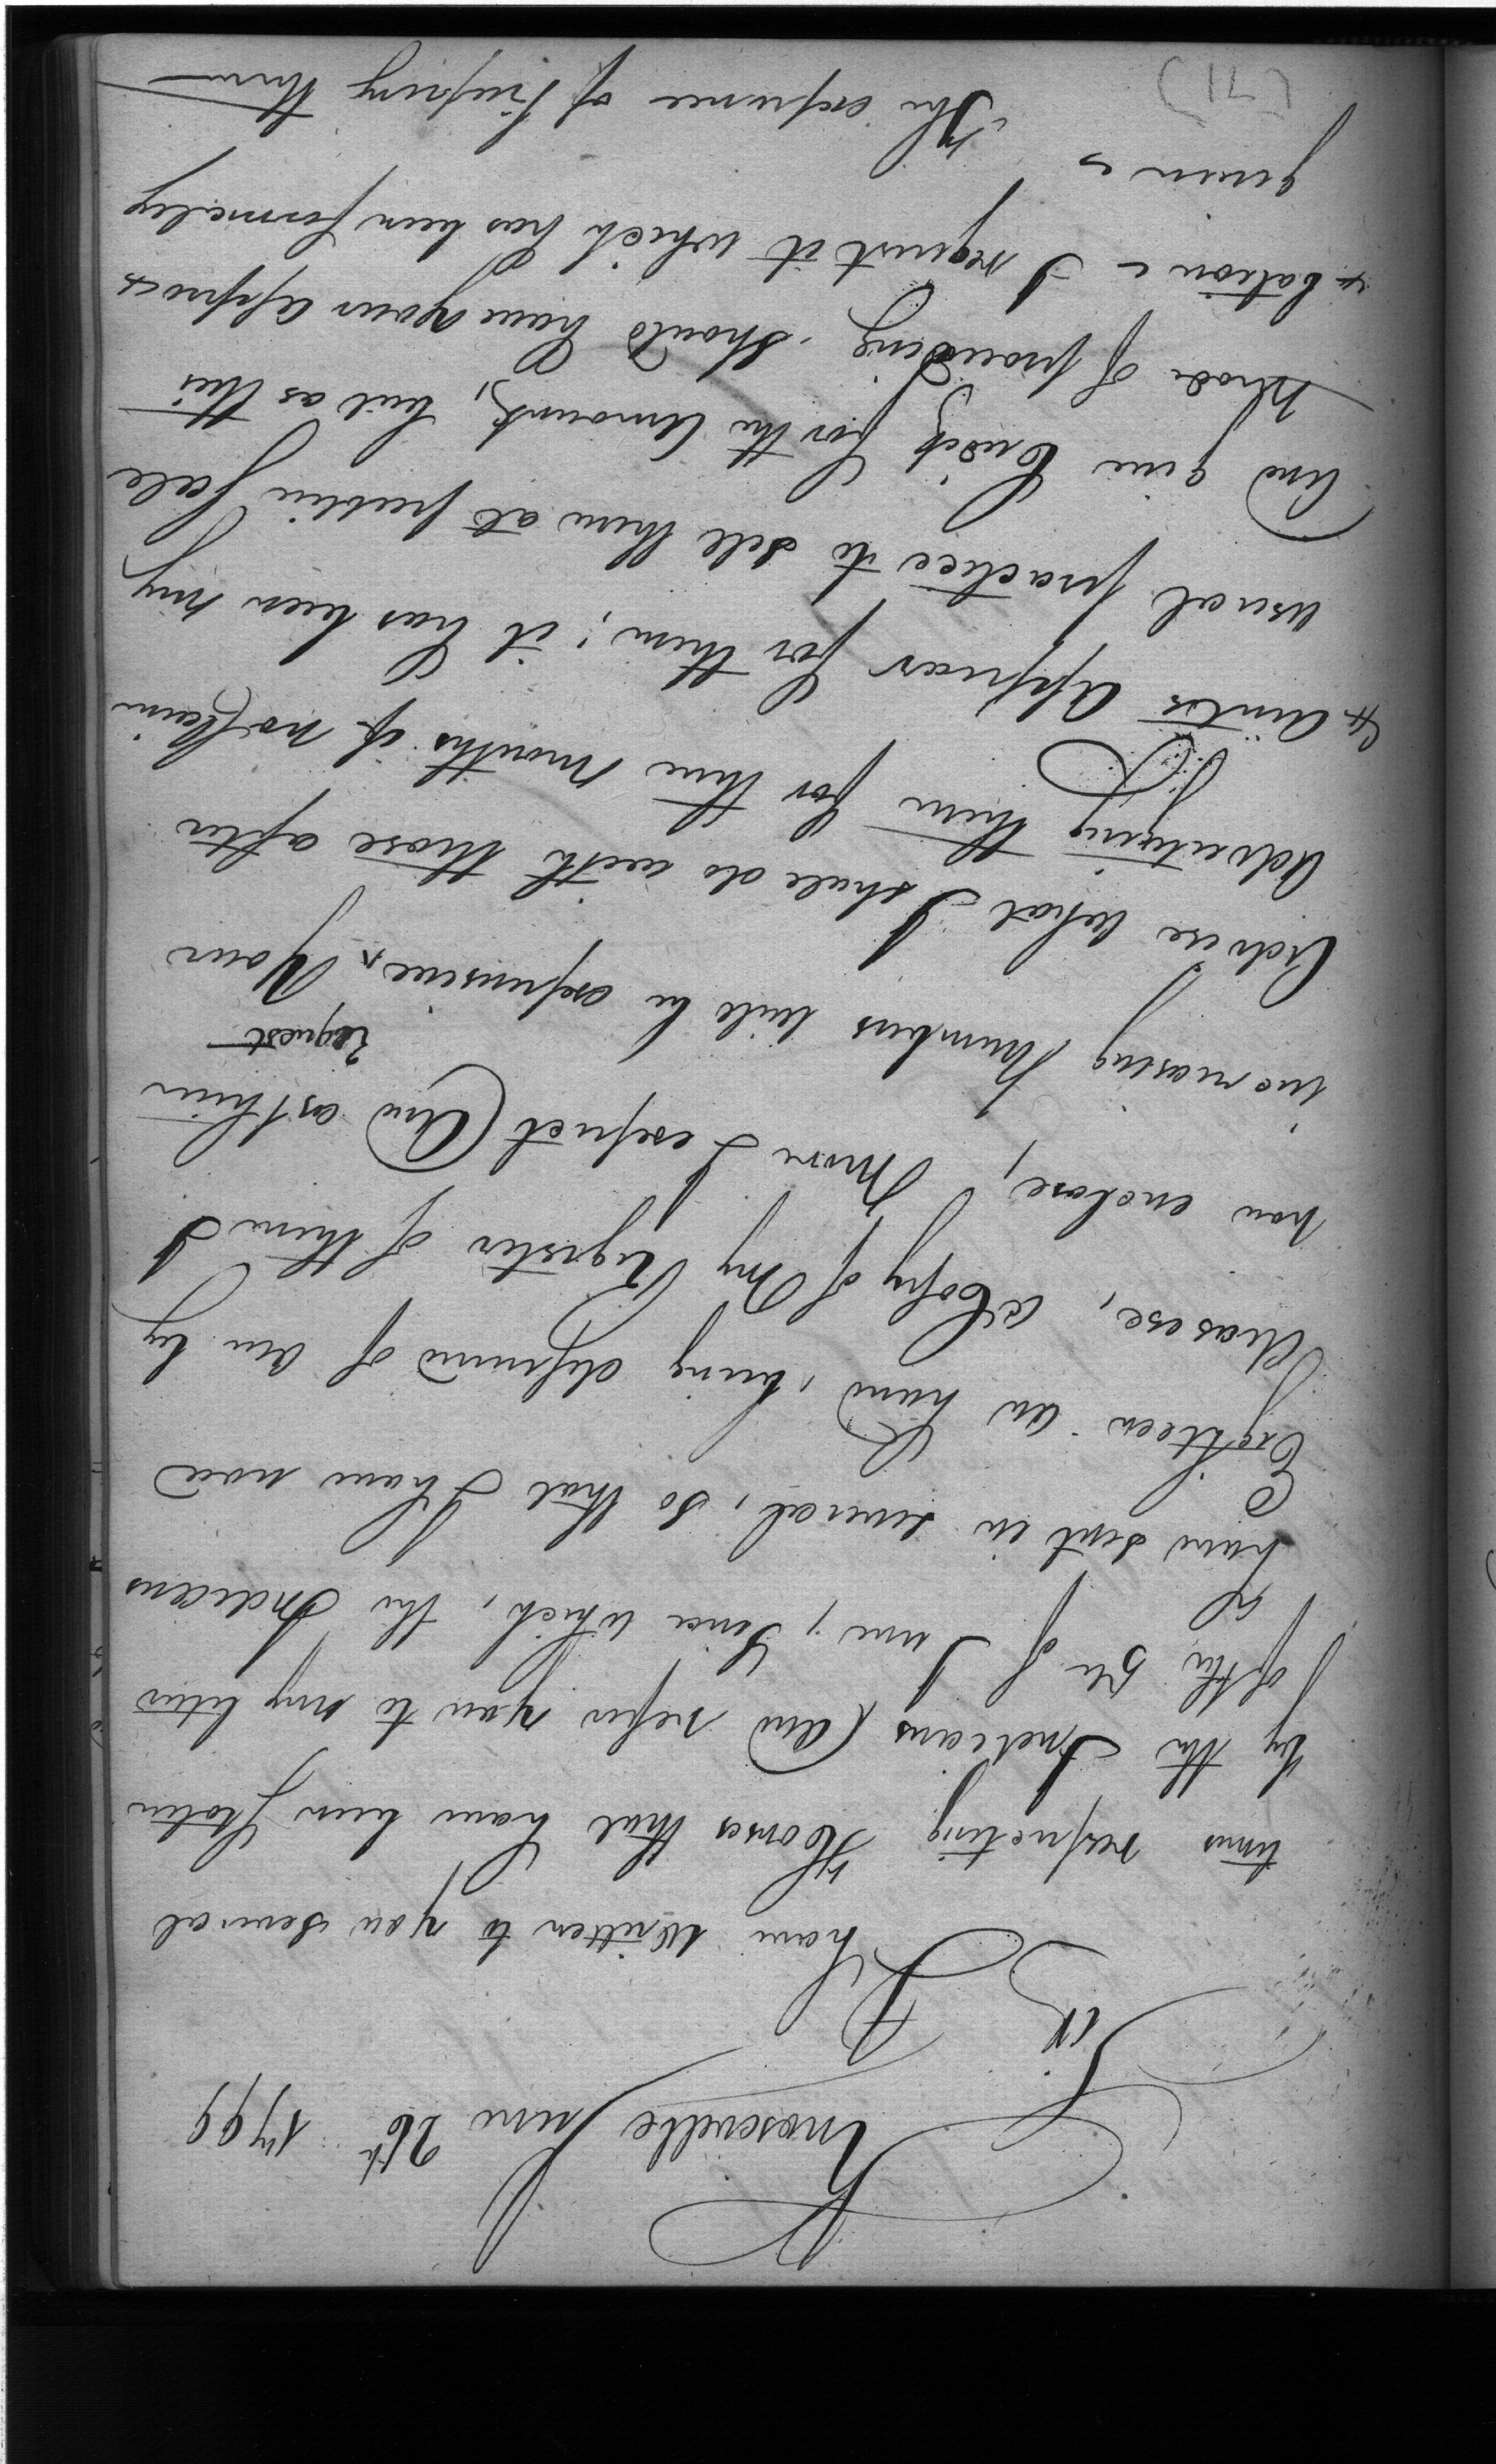 Knoxville June 26th 1799
Sir
I have written to you several
times respecting Horses that have been Stolen
by the Indians and refer you to my letter
of the 5th of June, Since which, the Indians
have sent in several, so that I have now
Eigtteen on hand, being disposed of an by
Please, a Copy of My Register of them I
now enclose, More I expect And as their
increasing Numbers will be expensive, request Your
Advice what I shall do with those after
Advertising them for three Months if no Claim
=aints Appear for them; it has been my
usual practice to sell them at public Sale
And give Credit for the Amount, but as this
Mode of proceeding, should have your appro=
=bation = I request it which has been formerly
given =
The expence of keeping them
(71)